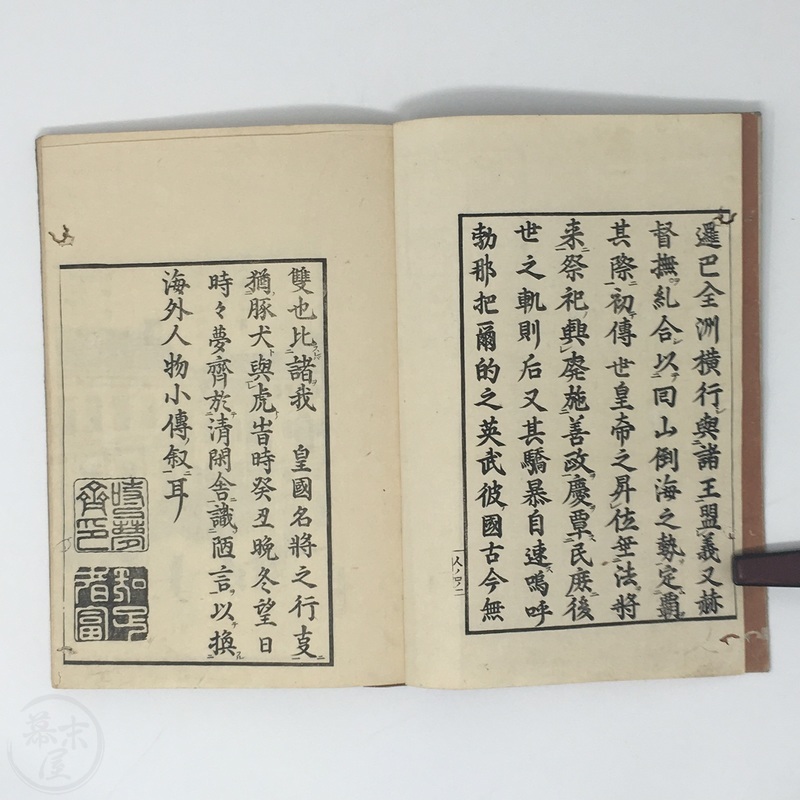 暹巴全洲橫行與諸王盟義又赫
督撫糺合以回山倒海之勢定霸
其際初傳世皇帝之昇位無法將
来祭祀興廃施善政慶覃民庶後
世之軌則后又其驕暴自速嗚呼
勃那把爾的之英武彼國古今無
人ノ四ノ二
雙也比諸我 皇國名將之行支
猶豚犬與虎峕時癸丑晩冬望日
時々夢齊於清閑舎識陋言以換
海外人物小傳叙耳
知足
者冨
幕末
屋